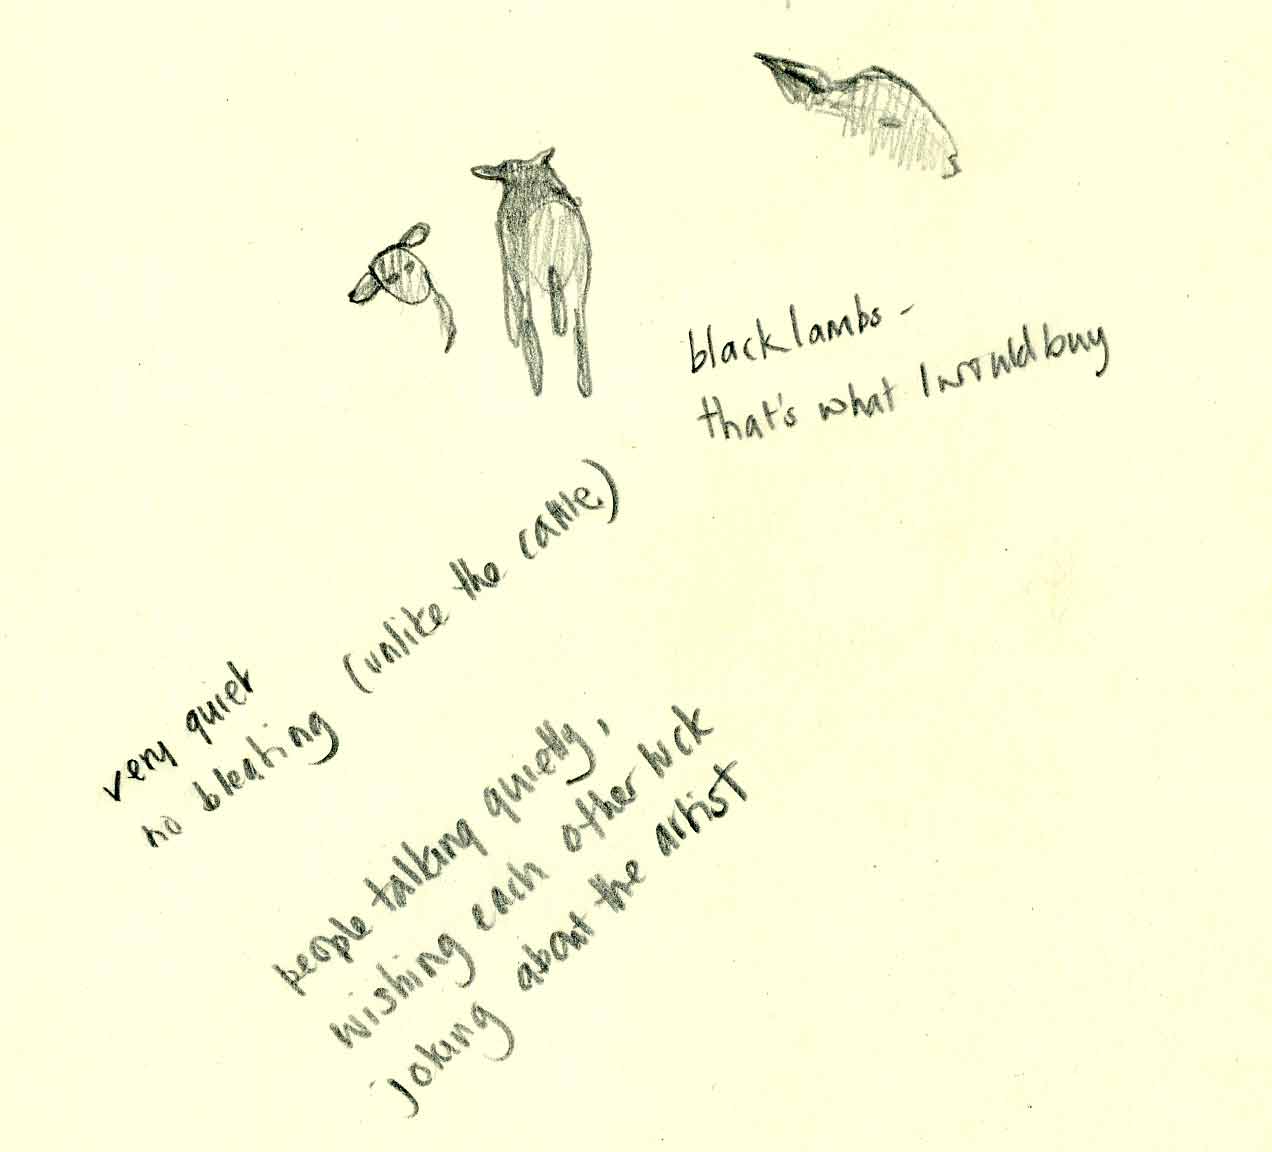 black lambs -
that's what I would buy
very quiet
no bleating (unlike the cattle)
people talking quietly,
wishing each other luck
joking about the artist